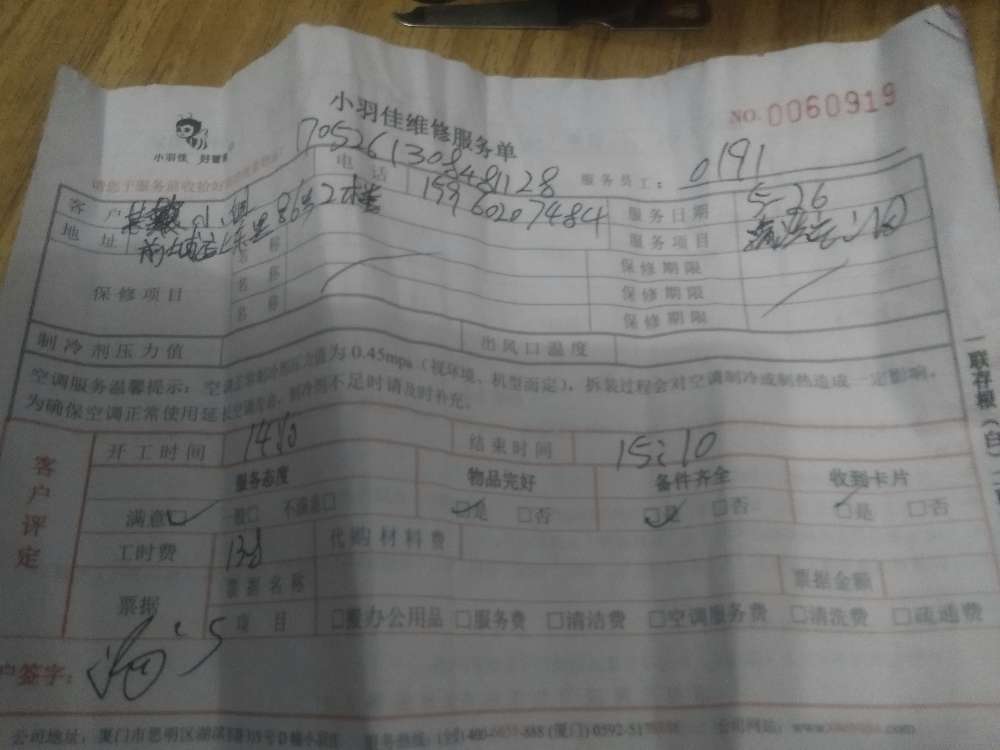 小羽佳维修服务单
NO. 0060919
小羽佳 好管
请您于服务前收拾好
705261308481128
电话 15960207484
服务员工: 0191
客户
服务日期 5-26
地址 86号2楼
服务项目
保修项目
名称 保修期限
名称 保修期限
名称 保修期限
制冷剂压力值 出风口温度
空调服务温馨提示: 空调正常制冷剂压力值为0.45mpa(视环境、机型而定),拆装过程会对空调制冷或制热造成一定影响。
为确保空调正常使用延长空调寿命,制冷剂不足时请及时补充。
客户评定
开工时间 结束时间 15:10
服务态度 物品完好 备件齐全 收到卡片
满意□ 一般□ 不满意□ □是 □否 □是 □否 □是 □否
工时费 138 代购材料费
票据 票据名称 票据金额
项目 □办公用品 □服务费 □清洁费 □空调服务费 □清洗费 □疏通费
户签字:
公司地址: 厦门市思明区湖滨 服务热线: (厦门) 0592-51 公司网站: www.
一联存根(白